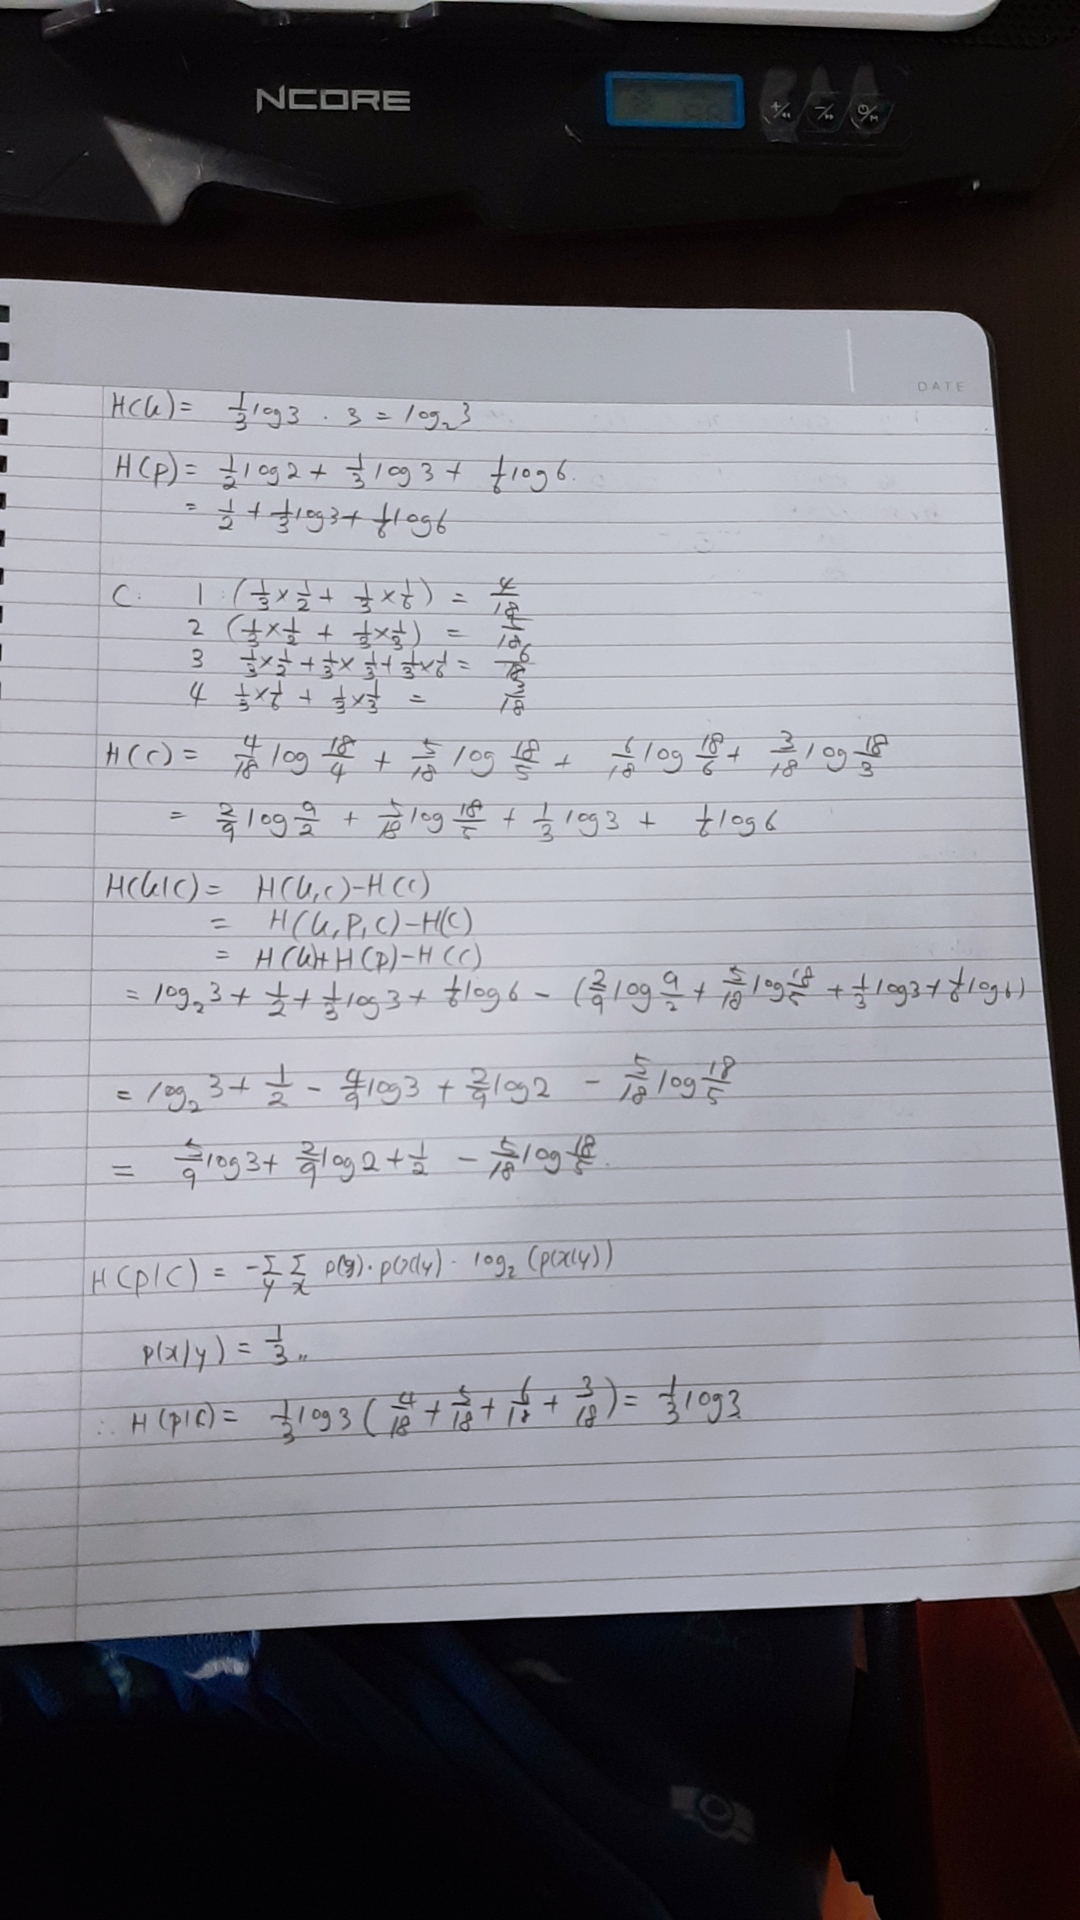 NCORE
DATE
H(k) = 1/3 log 3 · 3 = log₂3
H(p) = 1/2 log 2 + 1/3 log 3 + 1/6 log 6.
= 1/2 + 1/3 log 3 + 1/6 log 6
C. 1 (1/3 × 1/2 + 1/3 × 1/6) = 4/18
2 (1/3 × 1/2 + 1/3 × 1/3) = 5/18
3 1/3 × 1/2 + 1/3 × 1/3 + 1/3 × 1/6 = 6/18
4 1/3 × 1/6 + 1/3 × 1/3 = 3/18
H(C) = 4/18 log 18/4 + 5/18 log 18/5 + 6/18 log 18/6 + 3/18 log 18/3
= 2/9 log 9/2 + 5/18 log 18/5 + 1/3 log 3 + 1/6 log 6
H(k|C) = H(k,C) - H(C)
= H(k,P,C) - H(C)
= H(k) + H(p) - H(C)
= log₂3 + 1/2 + 1/3 log 3 + 1/6 log 6 - (2/9 log 9/2 + 5/18 log 18/5 + 1/3 log 3 + 1/6 log 6)
= log₂3 + 1/2 - 4/9 log 3 + 2/9 log 2 - 5/18 log 18/5
= 5/9 log 3 + 2/9 log 2 + 1/2 - 5/18 log 18/5.
H(p|C) = -Σy Σx p(y)·p(x|y)·log₂(p(x|y))
p(x|y) = 1/3 „
∴ H(p|C) = 1/3 log 3 (4/18 + 5/18 + 6/18 + 3/18) = 1/3 log 3